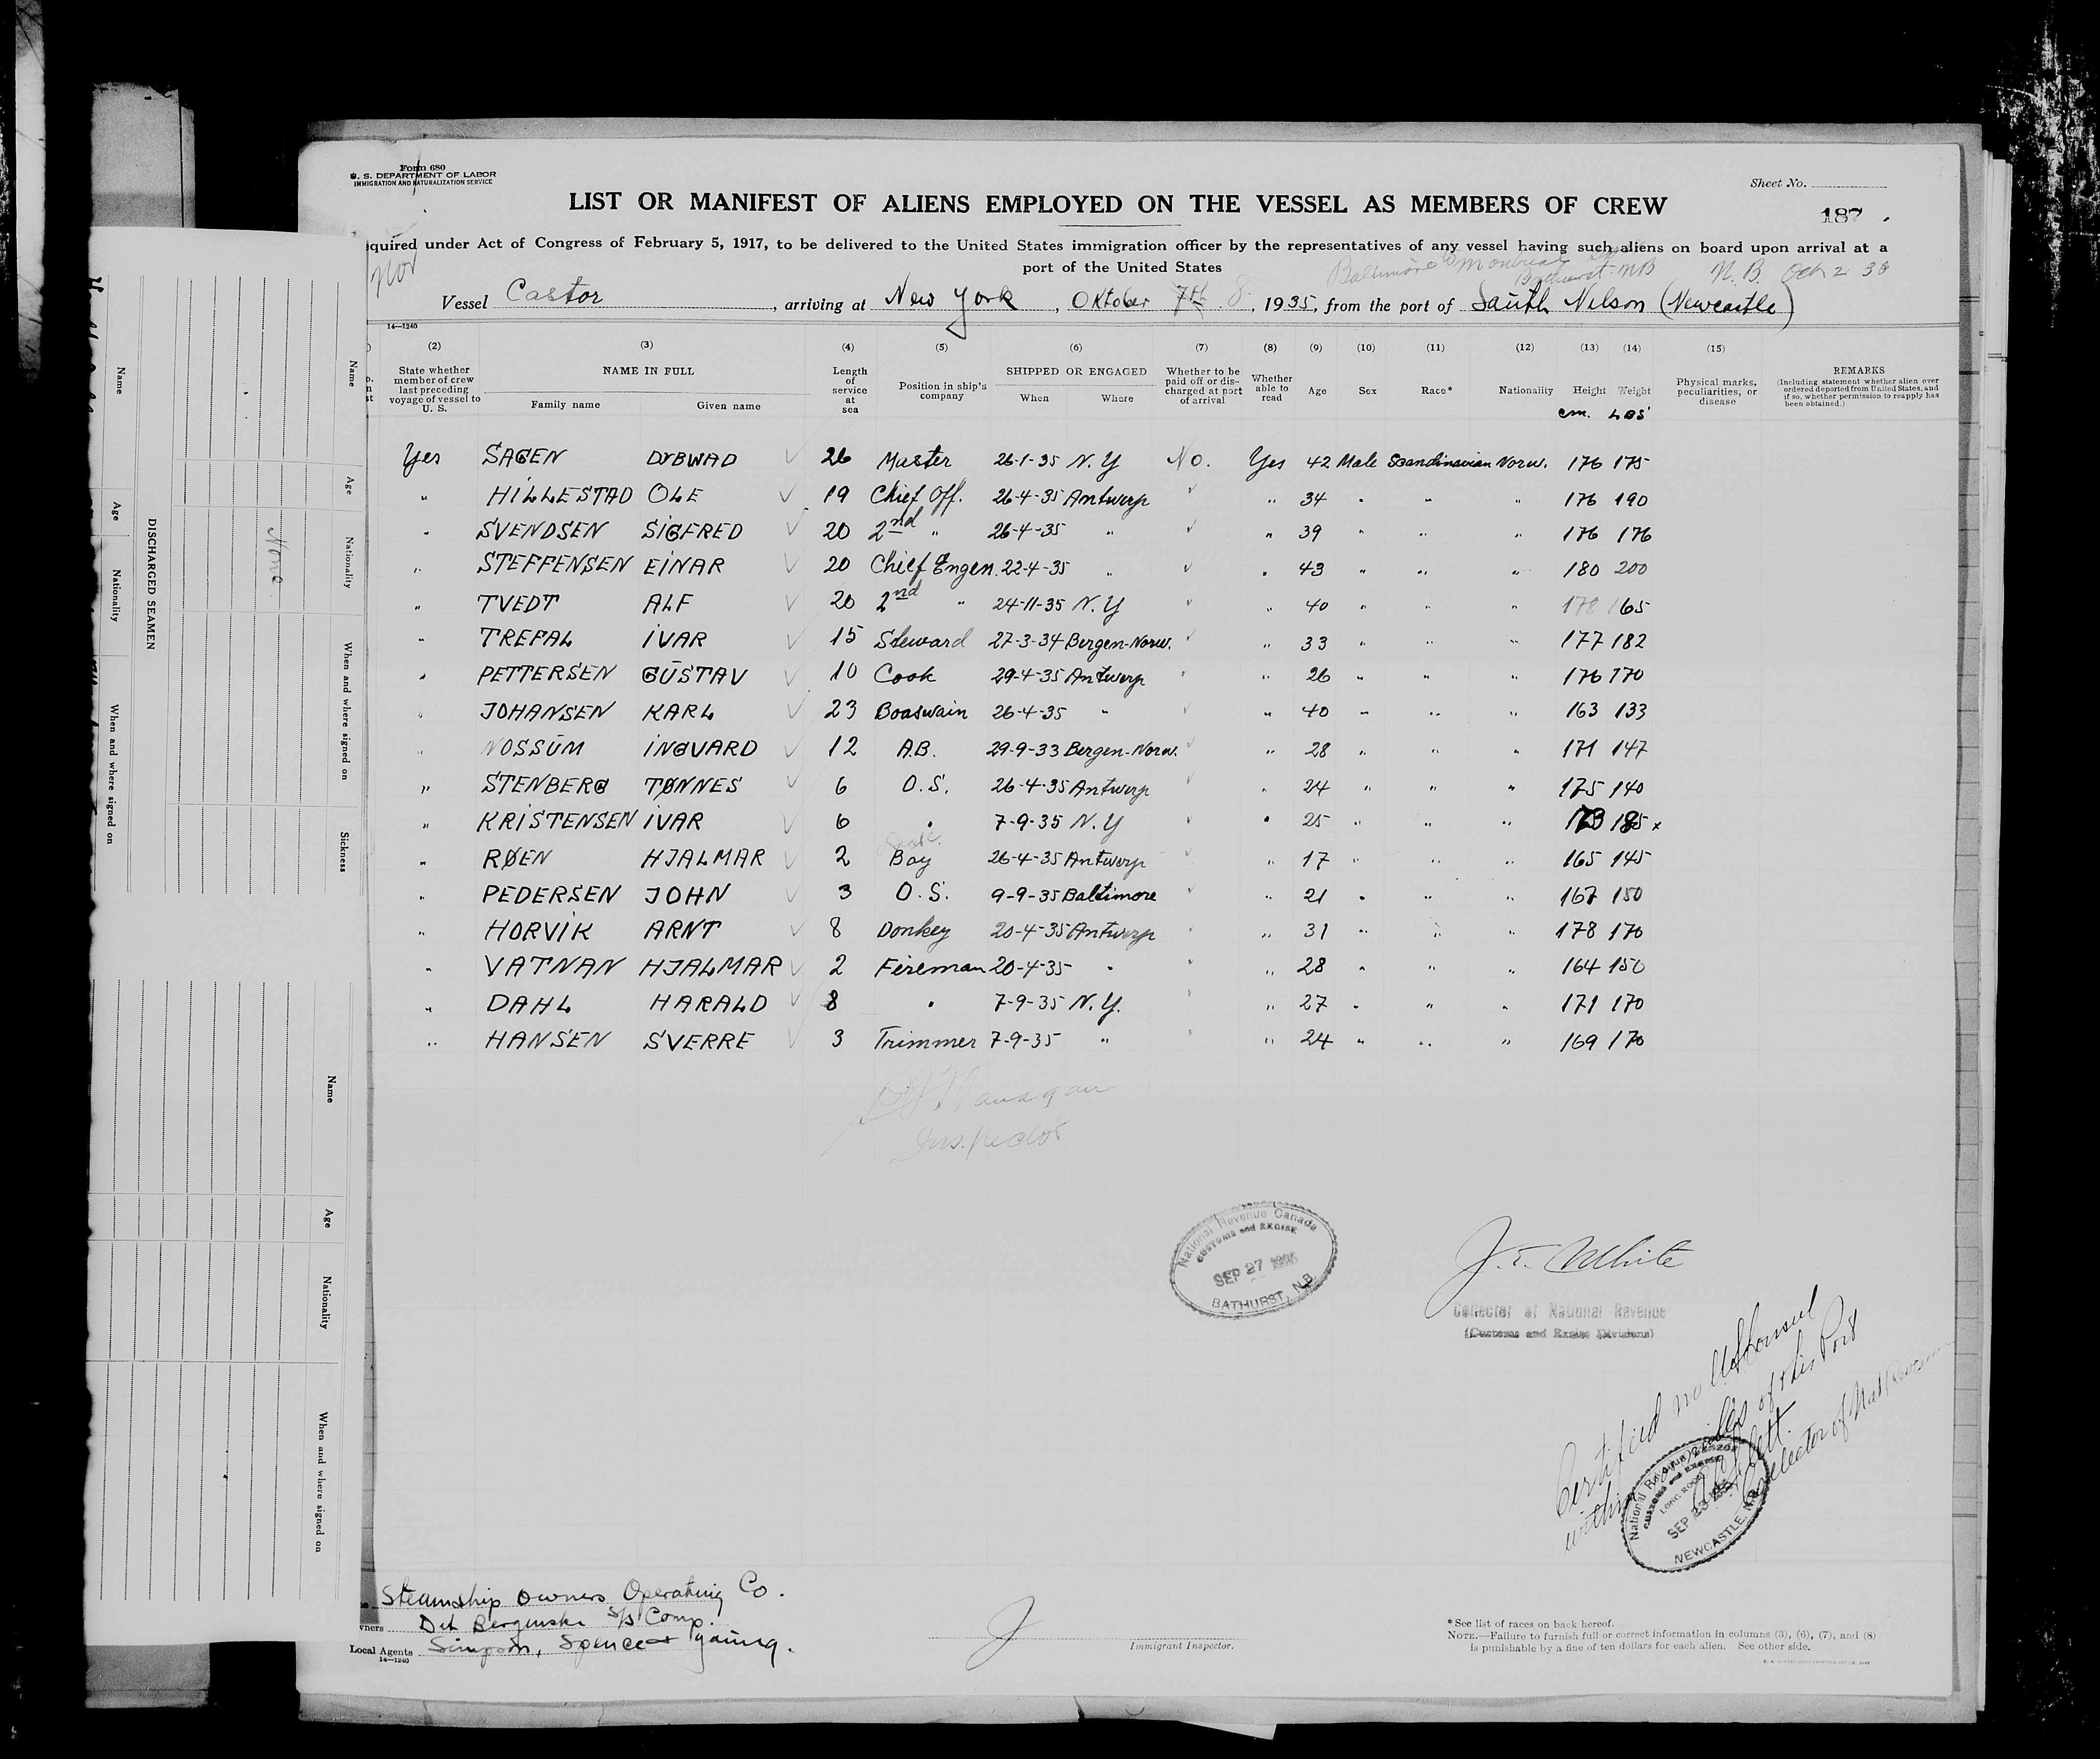 Form 680
U. S. DEPARTMENT OF LABOR
IMMIGRATION AND NATURALIZATION SERVICE
Sheet No.
LIST OR MANIFEST OF ALIENS EMPLOYED ON THE VESSEL AS MEMBERS OF CREW
187
quired under Act of Congress of February 5, 1917, to be delivered to the United States immigration officer by the representatives of any vessel having such aliens on board upon arrival at a
port of the United States
Nor
Baltimore to Montreal
Bathurst NB N. B. Oct 2 35
Vessel Castor, arriving at New York, Oktober 7th 8, 1935, from the port of South Nelson (Newcastle)
14—1240
(2) (3) (4) (5) (6) (7) (8) (9) (10) (11) (12) (13) (14) (15)
State whether member of crew last preceding voyage of vessel to U. S.
NAME IN FULL
Family name Given name
Length of service at sea
Position in ship's company
SHIPPED OR ENGAGED
When Where
Whether to be paid off or discharged at port of arrival
Whether able to read
Age Sex Race* Nationality Height Weight
cm. LBS
Physical marks, peculiarities, or disease
REMARKS
(Including statement whether alien ever ordered deported from United States, and if so, whether permission to reapply has been obtained.)
Yes SAGEN DYBWAD 26 Master 26-1-35 N.Y No. Yes 42 Male Scandinavian Norw. 176 175
" HILLESTAD OLE 19 Chief Off. 26-4-35 Antwerp " 34 " " " 176 190
" SVENDSEN SIGFRED 20 2nd " 26-4-35 " " 39 " " " 176 176
" STEFFENSEN EINAR 20 Chief Engen. 22-4-35 " " 43 " " " 180 200
" TVEDT ALF 20 2nd " 24-11-35 N.Y " 40 " " " 178 165
" TREFAL IVAR 15 Steward 27-3-34 Bergen-Norw. " 33 " " " 177 182
" PETTERSEN GŪSTAV 10 Cook 29-4-35 Antwerp " 26 " " " 176 170
" JOHANSEN KARL 23 Boaswain 26-4-35 " " 40 " " " 163 133
" NOSSŪM INGVARD 12 A.B. 29-9-33 Bergen-Norw. " 28 " " " 171 147
" STENBERG TØNNES 6 O.S. 26-4-35 Antwerp " 24 " " " 175 140
" KRISTENSEN IVAR 6 " 7-9-35 N.Y " 25 " " " 173 185 x
" RØEN HJALMAR 2 Deck Boy 26-4-35 Antwerp " 17 " " " 165 145
" PEDERSEN JOHN 3 O.S. 9-9-35 Baltimore " 21 " " " 167 150
" HORVIK ARNT 8 Donkey 20-4-35 Antwerp " 31 " " " 178 170
" VATNAN HJALMAR 2 Fireman 20-4-35 " " 28 " " " 164 150
" DAHL HARALD 8 " 7-9-35 N.Y. " 27 " " " 171 170
" HANSEN SVERRE 3 Trimmer 7-9-35 " " 24 " " " 169 170
Inspector
National Revenue Canada
CUSTOMS and EXCISE
SEP 27 1935
BATHURST, N.B.
J. E. White
Collector of National Revenue
(Customs and Excise Divisions)
Certified no US Consul
within miles of this Port
Collector of Nat Revenue
National Revenue Canada
CUSTOMS and EXCISE
LONG ROOM
SEP 23
NEWCASTLE, N.B.
Steamship Owners Operating Co.
wners Det Bergenske S/S Comp.
Local Agents Simpson, Spence & Young.
14—1240
Immigrant Inspector.
* See list of races on back hereof.
NOTE.—Failure to furnish full or correct information in columns (3), (6), (7), and (8)
is punishable by a fine of ten dollars for each alien. See other side.
DISCHARGED SEAMEN
Name Age Nationality When and where signed on Sickness
None
Name Age Nationality When and where signed on
Name Age Nationality When and where signed on